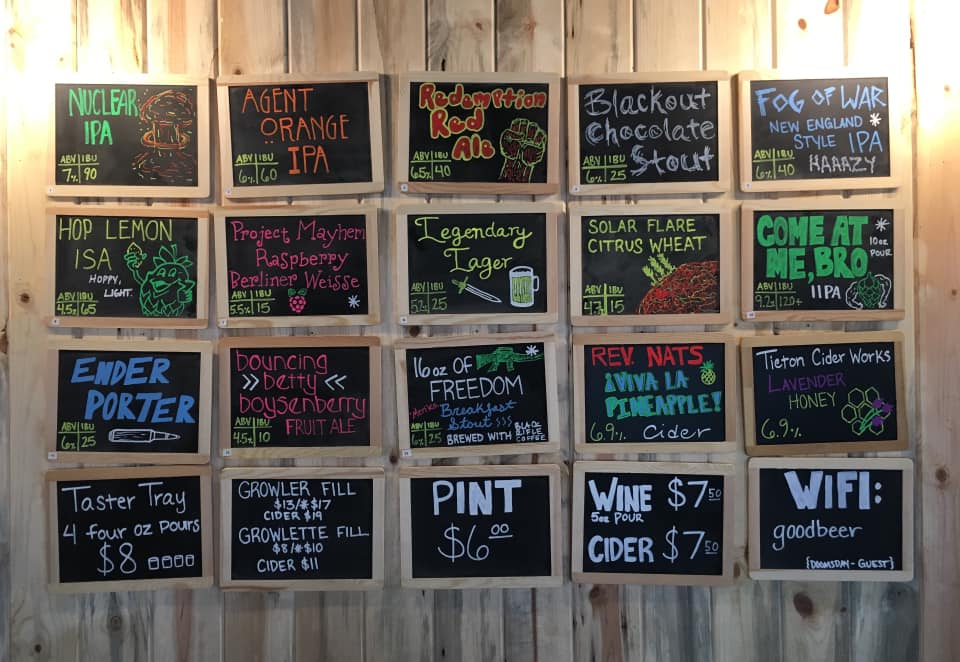 NUCLEAR
IPA
ABV IBU
7% 90
AGENT
ORANGE
IPA
ABV IBU
6% 60
Redemption
Red
Ale
ABV IBU
6.5% 40
Blackout
Chocolate
Stout
ABV IBU
6% 25
FOG OF WAR
NEW ENGLAND *
STYLE IPA
HAAAZY
ABV IBU
6% 40
HOP LEMON
ISA
HOPPY,
LIGHT.
ABV IBU
4.5% 65
Project Mayhem
Raspberry
Berliner Weisse
ABV IBU
5.5% 15 *
Legendary
Lager
ABV IBU
5.2% 25
SOLAR FLARE
CITRUS WHEAT
ABV IBU
4.7% 15
COME AT *
ME, BRO 10oz
POUR
IIPA
ABV IBU
9.2% 120+
ENDER
PORTER
ABV IBU
6% 25
bouncing
» betty «
boysenberry
FRUIT ALE
ABV IBU
4.5% 10
16oz OF *
FREEDOM
Breakfast
Stout
BREWED WITH BLACK
RIFLE
COFFEE
ABV IBU
6% 25
REV. NATS
¡VIVA LA
PINEAPPLE!
6.9% Cider
Tieton Cider Works
LAVENDER
HONEY
6.9%
Taster Tray
4 four oz pours
$8
GROWLER FILL
$13/*$17
CIDER $19
GROWLETTE FILL
$8/*$10
CIDER $11
PINT
$6.00
WINE $7.50
5oz POUR
CIDER $7.50
WIFI:
goodbeer
{DOOMSDAY-GUEST}